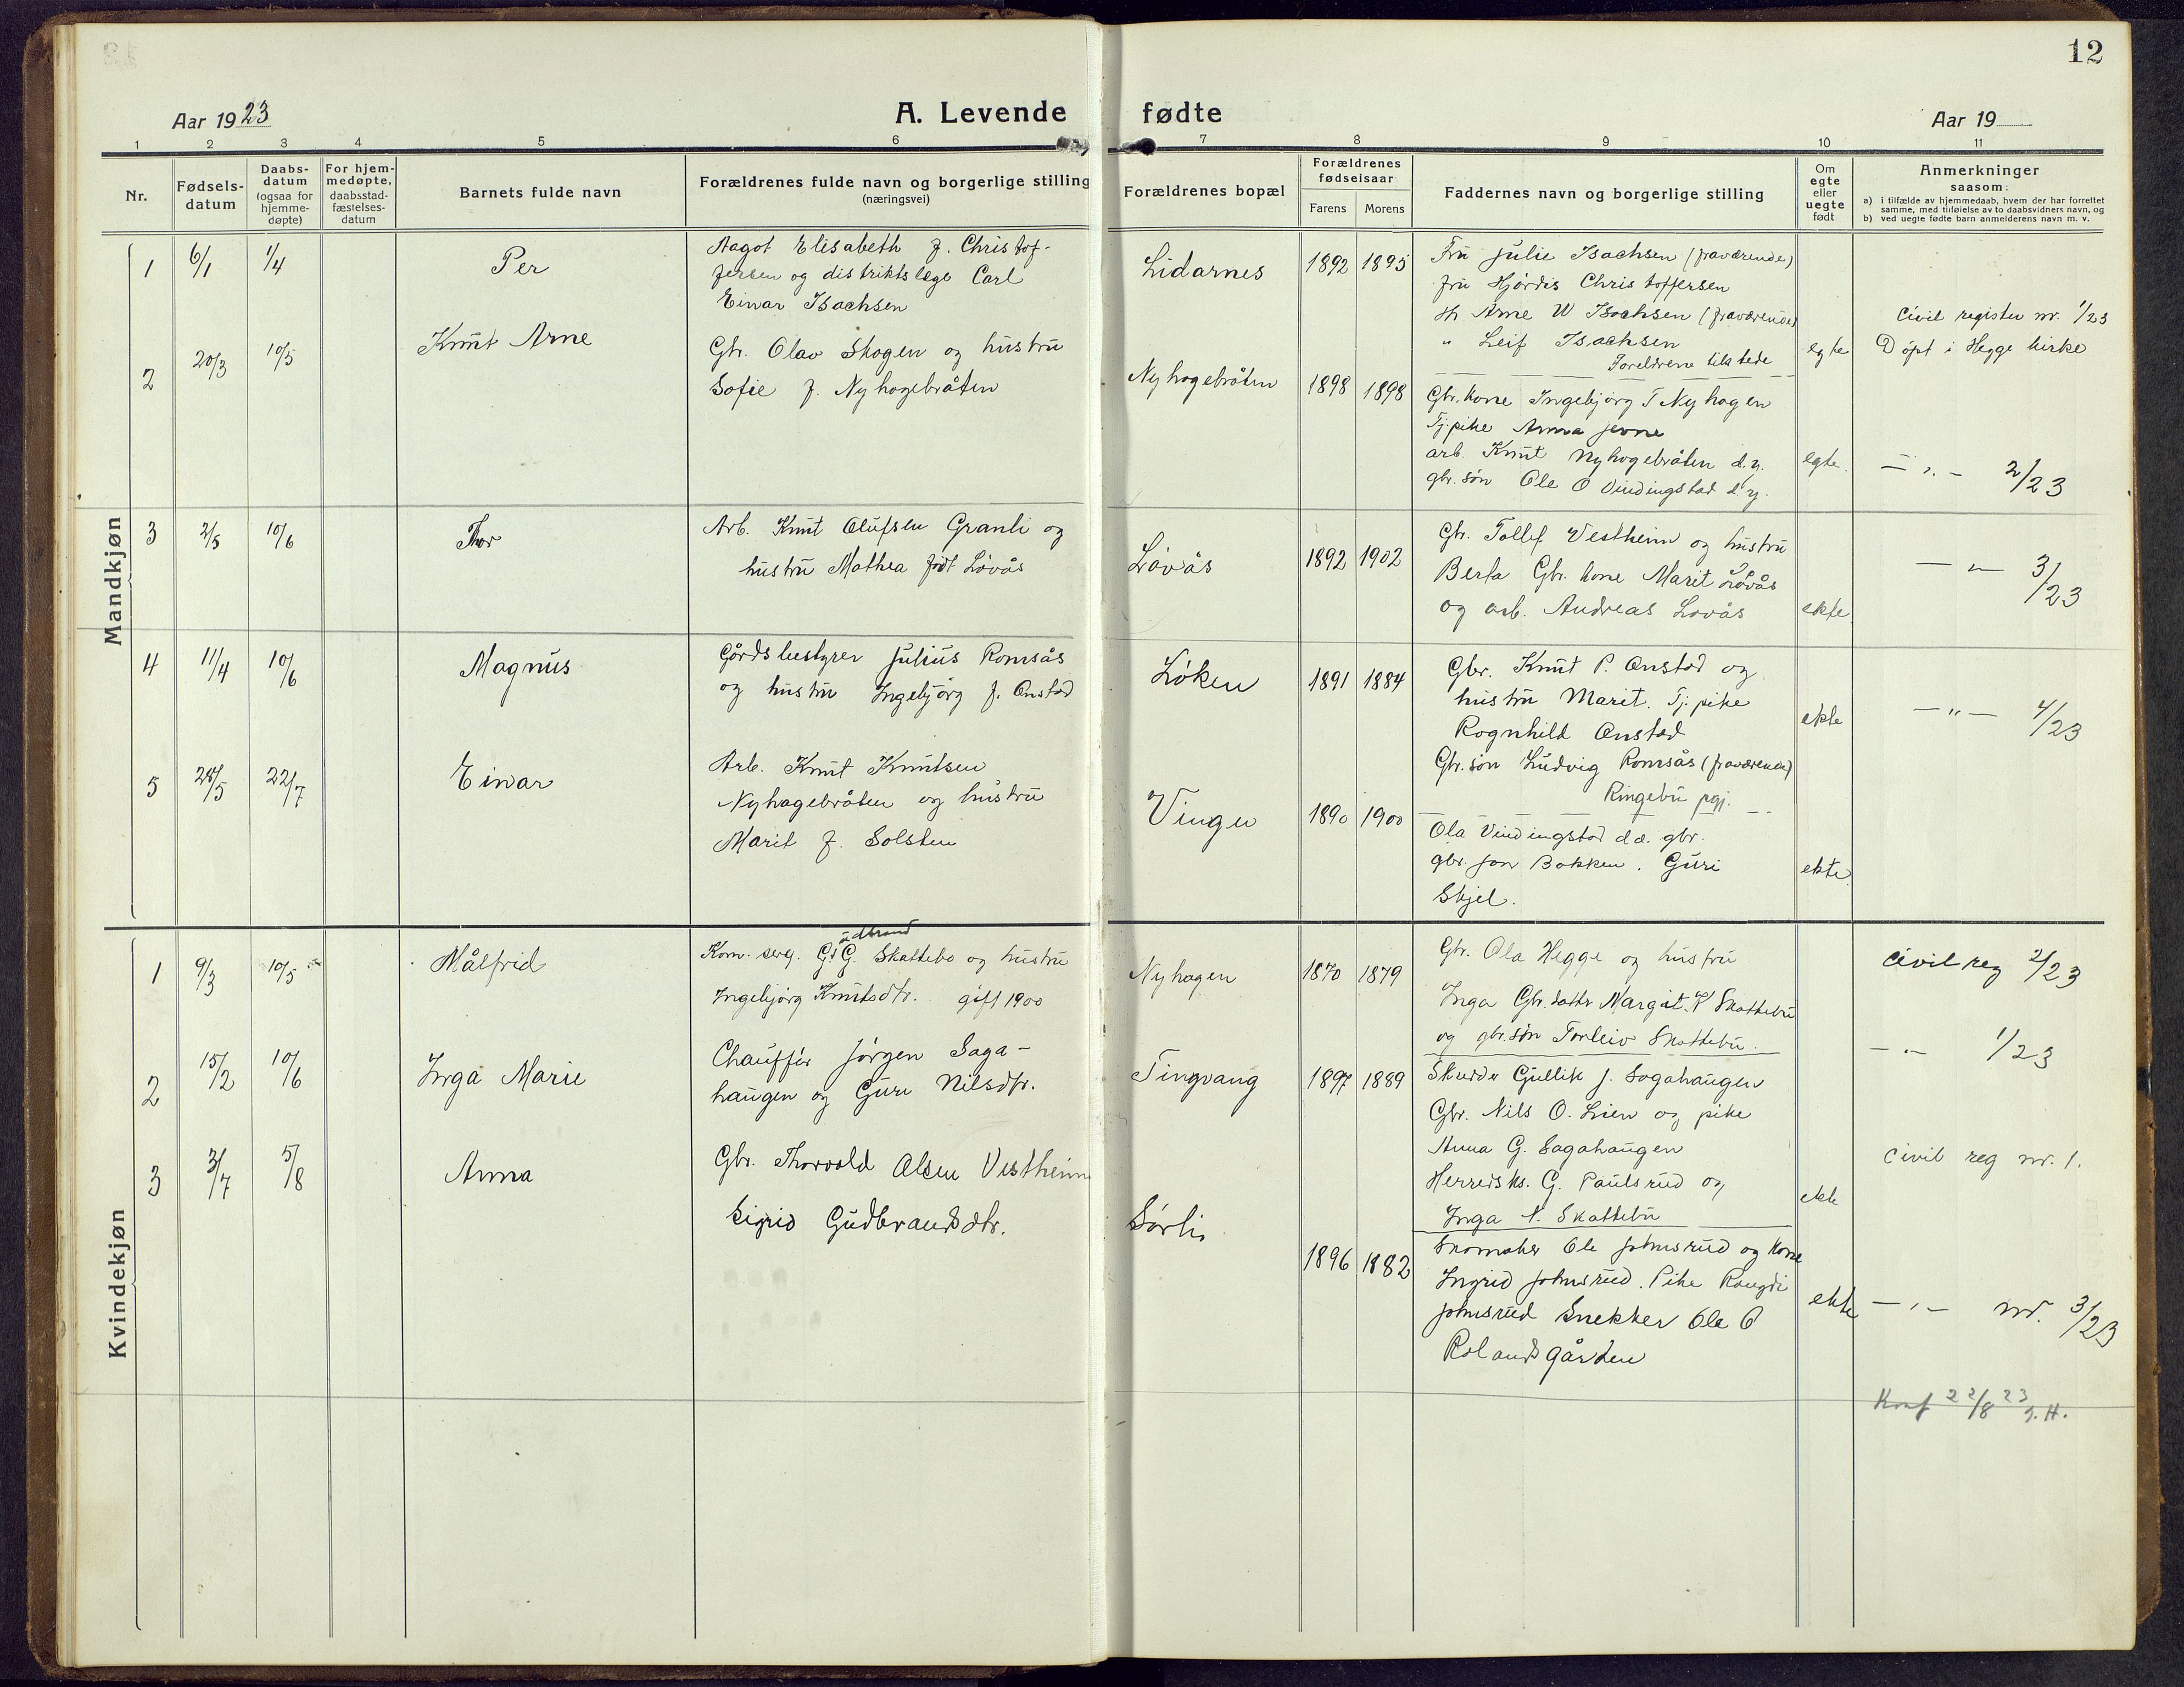 12
Aar 1923
A. Levende
fødte
Aar 19
1 2 3 4 5 6 7 8 9 10 11
Nr.
Fødsels-
datum
Daabs-
datum
(ogsaa for
hjemme-
døpte)
For hjem-
medøpte,
daabsstad-
fæstelses-
datum
Barnets fulde navn
Forældrenes fulde navn og borgerlige stilling
(næringsvei)
Forældrenes bopæl
Forældrenes
fødselsaar
Farens Morens
Faddernes navn og borgerlige stilling
Om
egte
eller
uegte
født
Anmerkninger
saasom:
a) i tilfælde av hjemmedaab, hvem der har forrettet
samme, med tilføielse av to daabsvidners navn, og
b) ved uegte fødte barn anmelderens navn m. v.
Mandkjøn
1 6/1 1/4 Per
Aagot Elisabeth f. Christof-
fersen og distriktslæge Carl
Einar Isachsen
Lidarnes 1892 1895
Fru Julie Isachsen (fraværende)
fru Hjördis Christoffersen
Hr Arne W Isachsen (fraværende)
" Leif Isachsen
Foreldrene tilstede
egte
Civil register nr. 1/23
Döpt i Hegge kirke
2 20/3 10/5 Knut Arne
Gbr. Olav Skogen og hustru
Sofie f. Nyhagebråten
Nyhagebråten 1898 1898
Gbr. kone Ingebjörg T Nyhagen
Tj.pike Anna Jevne
arb. Knut Nyhagebråten d.y.
gbr. sön Ole O Vindingstad d.y.
egte
— " — 2/23
3 2/5 10/6 Thor
Arb. Knut Olufsen Granli og
hustru Mathea födt Lövås
Lövås 1892 1902
Gbr. Tollef Vestheim og hustru
Berta Gbr. kone Marit Lövås
og arb. Andreas Lövås
ekte
— " — 3/23
4 11/4 10/6 Magnus
Gårdsbestyrer Julius Romsås
og hustru Ingebjörg f. Onstad
Løken 1891 1884
Gbr. Knut P. Onstad og
hustru Marit. Tj. pike
Ragnhild Onstad
Gbr. sön Ludvig Romsås (fraværende)
Ringebu pgj.
ekte
— " — 4/23
5 /5 22/7 Einar
Arb. Knut Knutsen
Nyhagebråten og hustru
Marit f. Solsten
Vingu 1890 1900
Ola Vindingstad d.æ. gbr.
gbr. Jon Bakken. Guri
Skjel.
ekte
Kvindekjøn
1 9/3 10/5 Målfrid
udbrand
Korn. serg. G. G. Skattebo og hustru
Ingebjörg Knutsdtr. gift 1900
Nyhagen 1870 1879
Gbr. Ola Hegge og hustru
Inga Gbr. datter Margit K Skattebu
og gbr. sön Torleiv Skattebu.
Civil reg 2/23
2 15/2 10/6 Inga Marie
Chaufför Jörgen Saga-
haugen og Guri Nilsdtr.
Tingvang 1897 1889
Skredder Gullik J. Sagahaugen
Gbr. Nils O. Lien og pike
Anna G. Sagahaugen
Herredsks. G. Paulsrud og
Inga N. Skattebu
ekte
— " — 1/23
Civil reg nr. 1.
3 3/7 5/8 Anna
Gbr. Thorvald Olsen Vestheim
Sigrid Gudbrandsdtr.
Sörli 1896 1882
Skomaker Ole Johnsrud og kone
Ingrid Johnsrud. Pike Rangdi
Johnsrud Snekker Ole O
Rolandsgården
ekte
— " — nr. 3/23
Konf 22/8 23